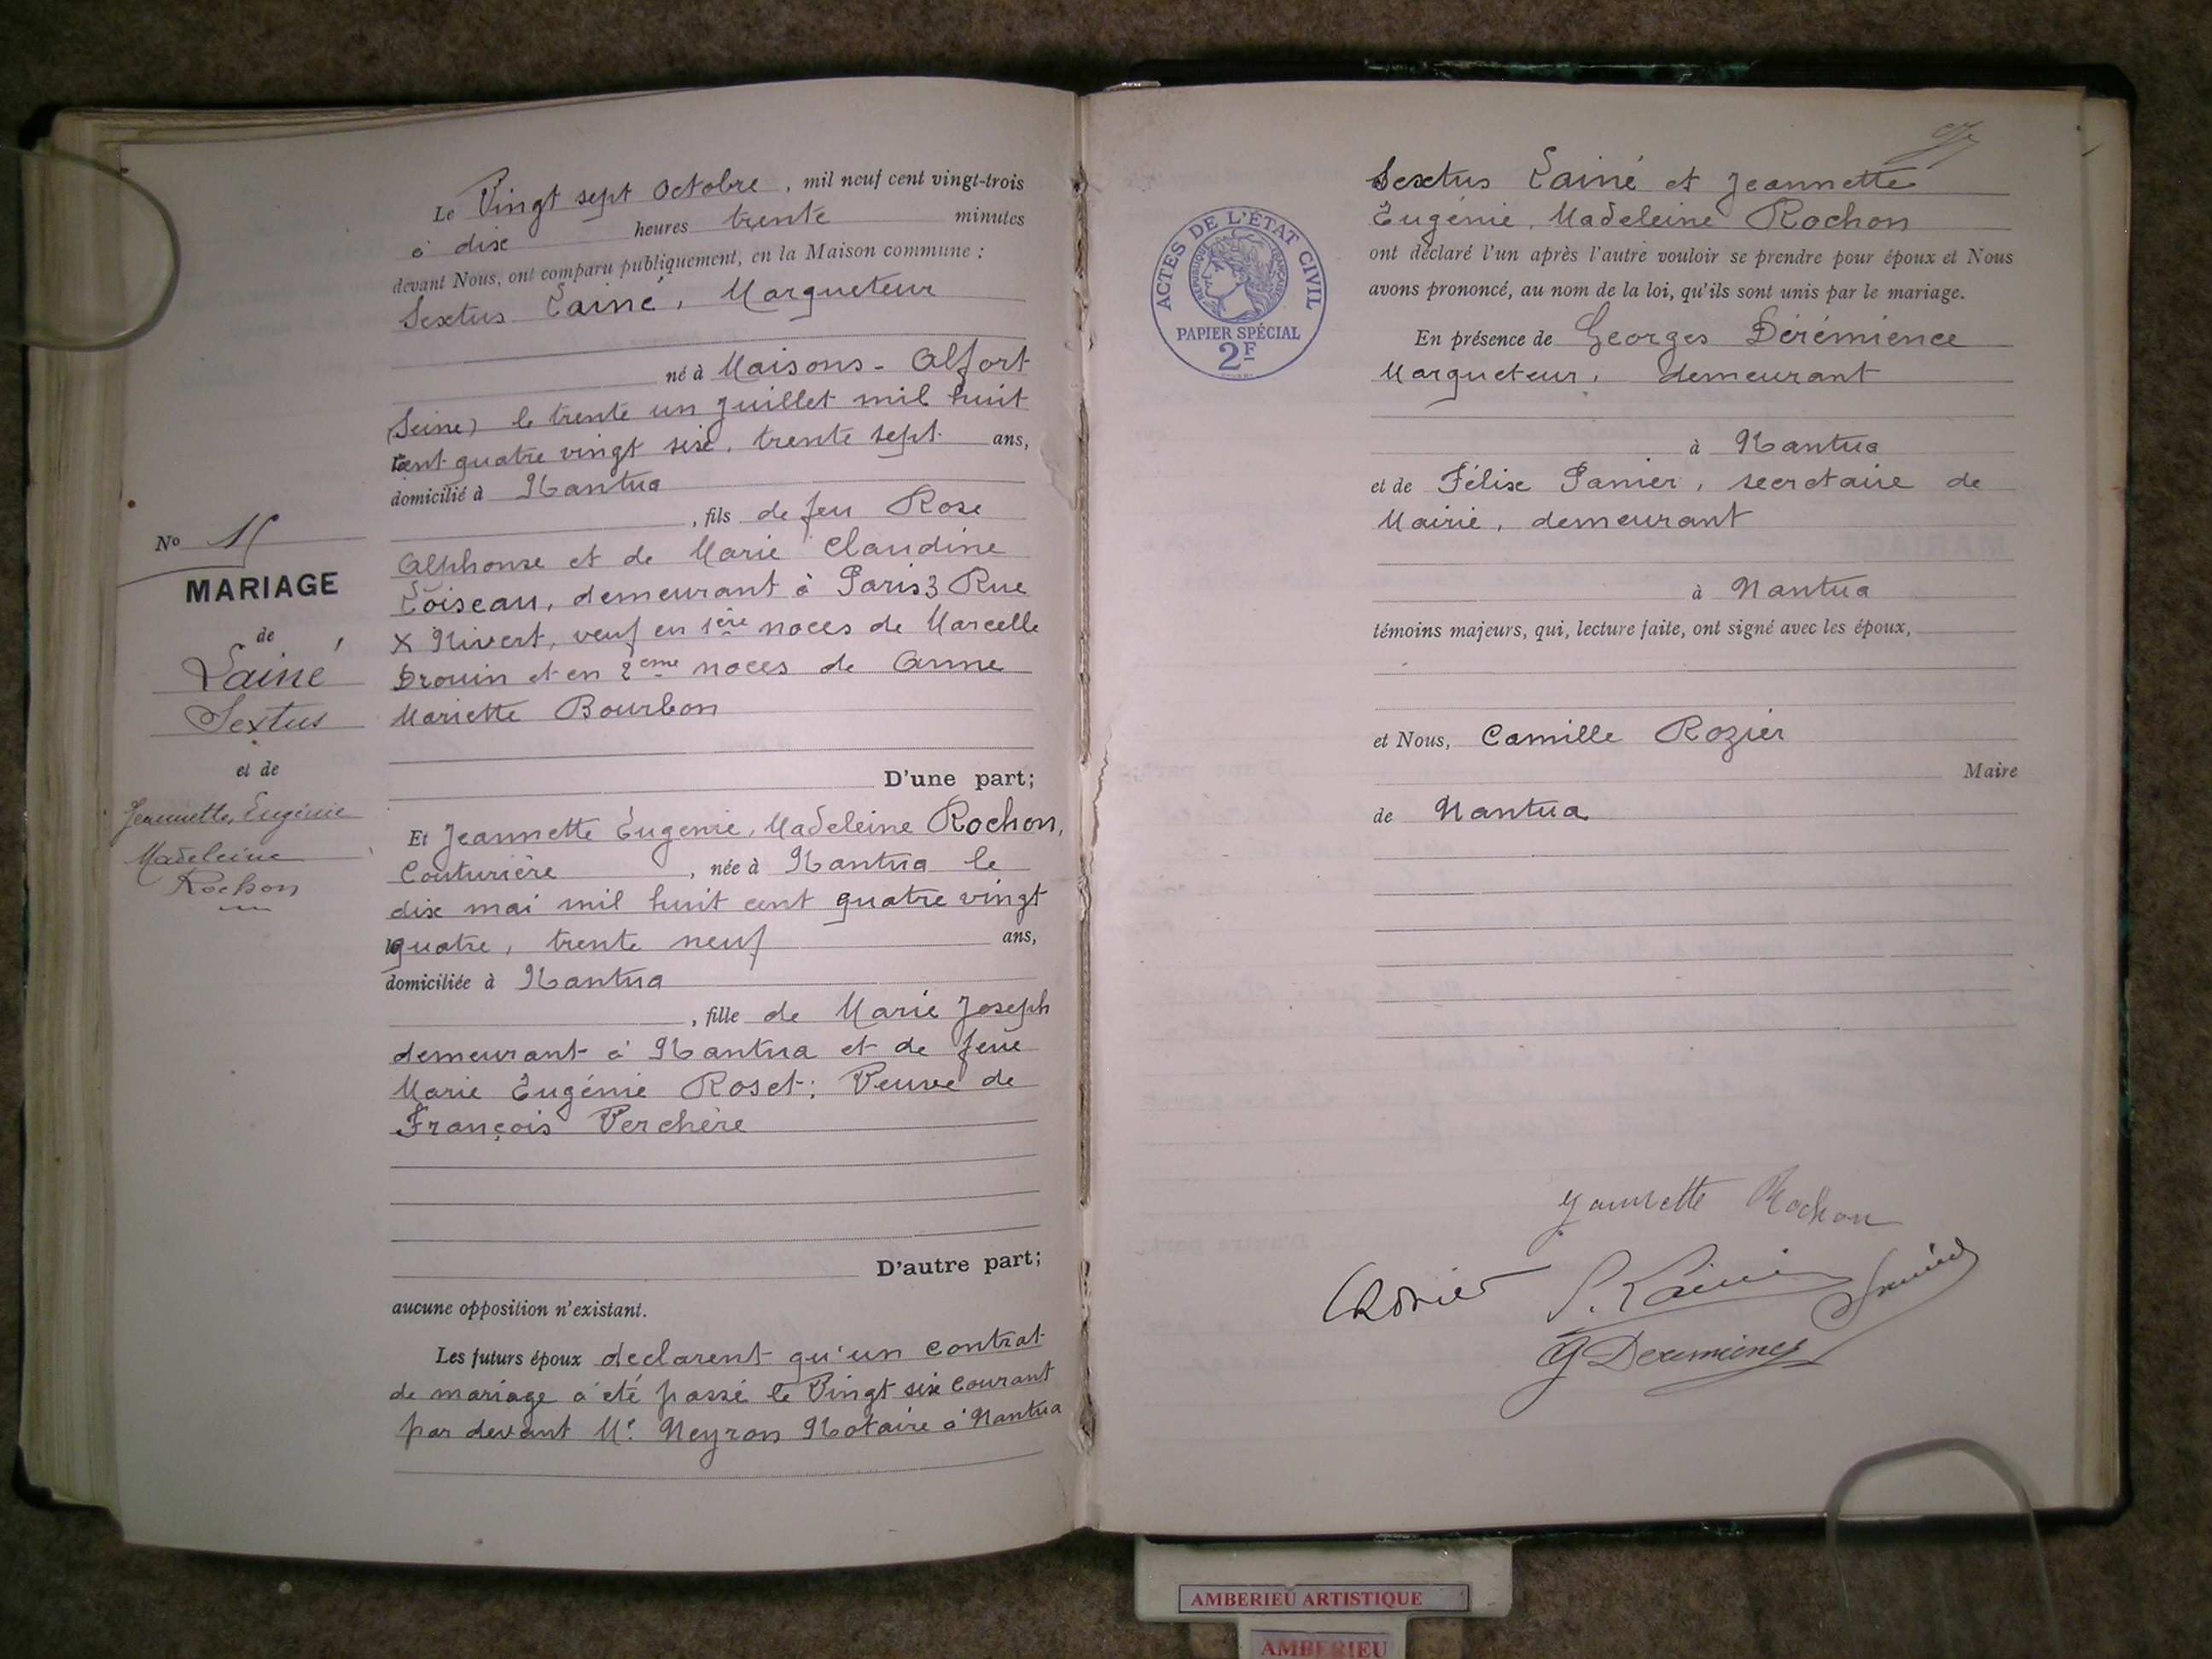 Le Vingt sept Octobre, mil neuf cent vingt-trois
à dix heures trente minutes
devant Nous, ont comparu publiquement, en la Maison commune :
Sextus Lainé, Marqueteur
né à Maisons-Alfort
(Seine) le trente un Juillet mil huit
cent quatre vingt six, trente sept ans,
domicilié à Nantua
, fils de feu Rose
Alphonse et de Marie Claudine
Loiseau, demeurant à Paris 3 Rue
X Nivert, veuf en 1ère noces de Marcelle
Drouin et en 2eme noces de Anne
Mariette Bourbon
D'une part;
No
MARIAGE
de
Lainé
Sextus
et de
Jeannette, Eugénie
Madeleine
Rochon
Et Jeannette Eugenie, Madeleine Rochon,
Couturière, née à Nantua le
dix mai mil huit cent quatre vingt
quatre, trente neuf ans,
domiciliée à Nantua
, fille de Marie Joseph
demeurant à Nantua et de feue
Marie Eugénie Roset; Veuve de
François Verchère
D'autre part;
aucune opposition n'existant.
Les futurs époux declarent qu'un contrat
de mariage a été passé le Vingt six courant
par devant Me Neyron Notaire à Nantua
Sextus Lainé et Jeannette
Eugénie, Madeleine Rochon
ont déclaré l'un après l'autre vouloir se prendre pour époux et Nous
avons prononcé, au nom de la loi, qu'ils sont unis par le mariage.
En présence de Georges Dérémience
Marqueteur, demeurant
à Nantua
et de Félix Panier, secretaire de
Mairie, demeurant
à Nantua
témoins majeurs, qui, lecture faite, ont signé avec les époux,
et Nous, Camille Rozier
Maire
de Nantua
ACTES DE L'ÉTAT CIVIL
RÉPUBLIQUE FRANÇAISE
PAPIER SPÉCIAL
2F
Jeannette Rochon
CRozier S. Lainé
AMBERIEU ARTISTIQUE
AMBERIEU